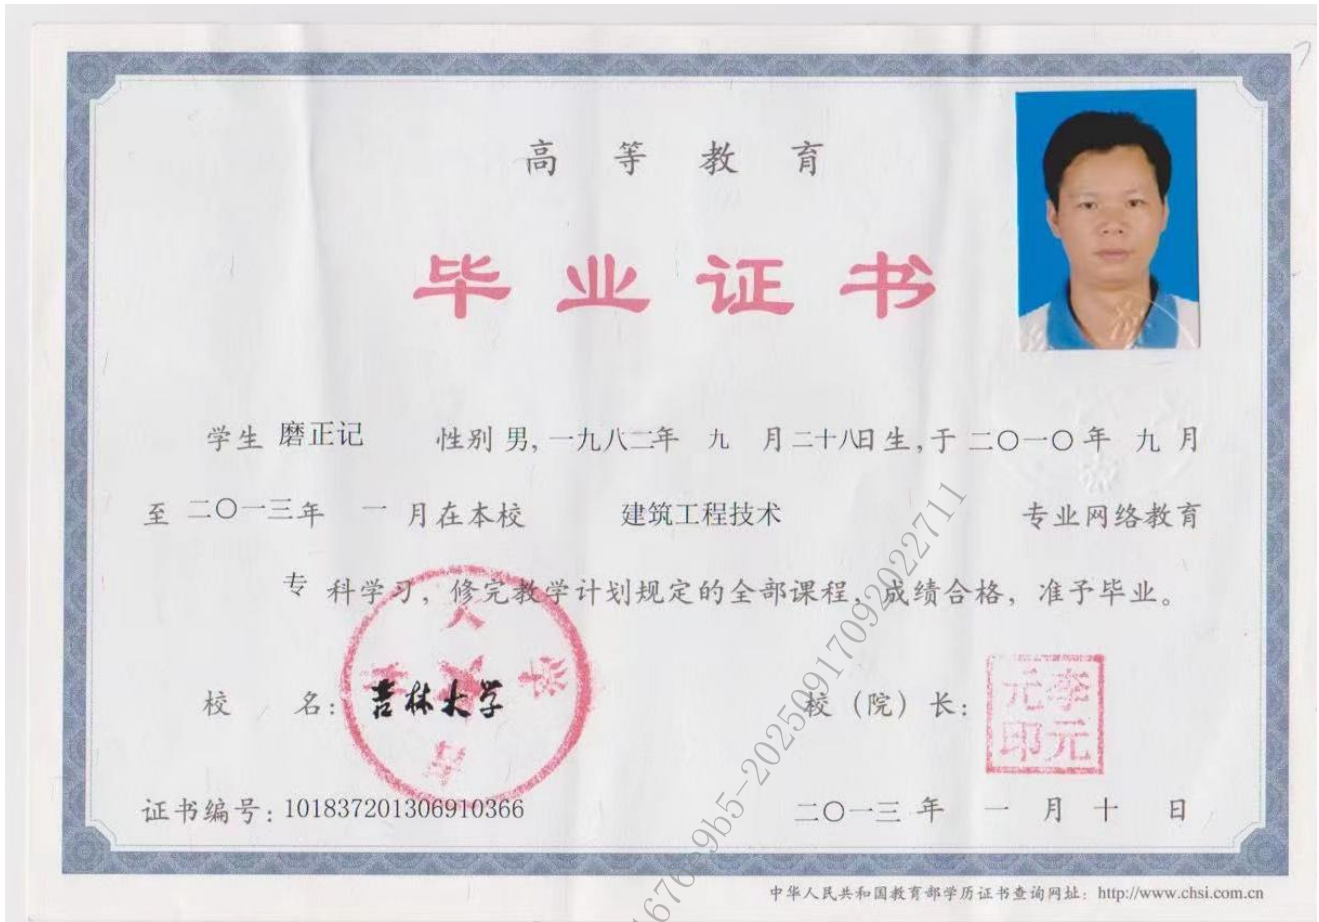 高等教育
毕业证书
学生 磨正记 性别 男, 一九八二年 九 月二十八日生, 于 二〇一〇年 九 月
至 二〇一三年 一 月在本校 建筑工程技术 专业网络教育
专 科学习, 修完教学计划规定的全部课程, 成绩合格, 准予毕业。
校 名: 吉林大学 校（院）长: 李元元印
证书编号: 101837201306910366 二〇一三 年 一 月 十 日
中华人民共和国教育部学历证书查询网址: http://www.chsi.com.cn